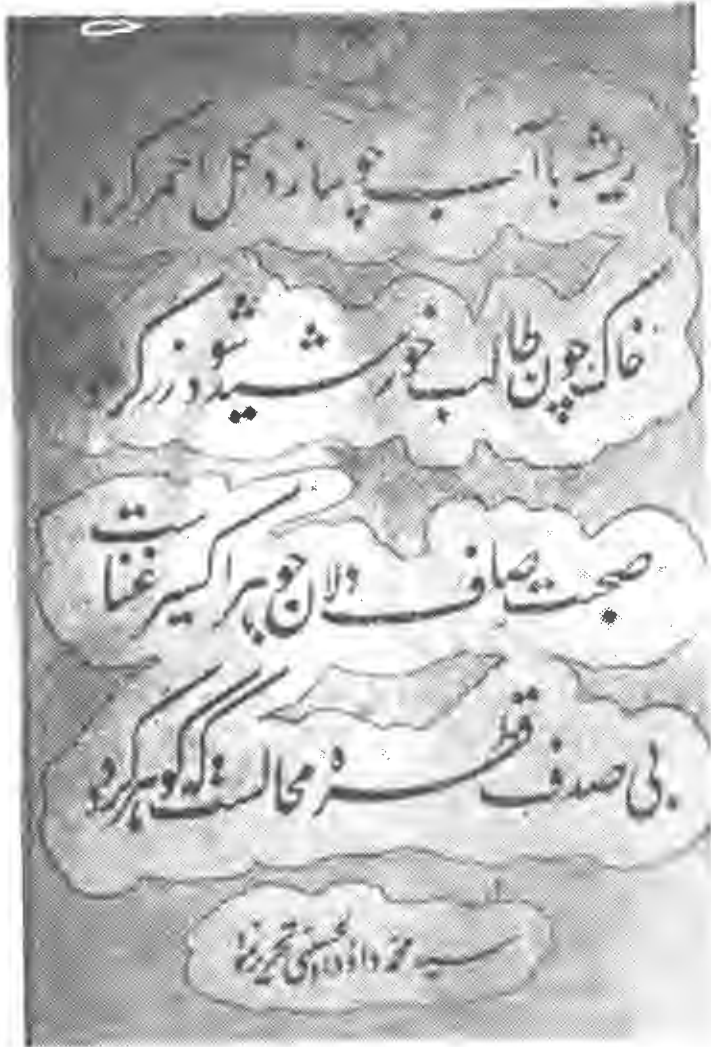 ریشه با آب چو سازد گل احمر گردد
خاک چون طالب خورشید شود زر گردد
صحبت صاف دلان جو پا هر اکسیر غناست
بی صدف قطره محالست که گوهر گردد
سید محمد داؤد الحسینی تحریر نمود